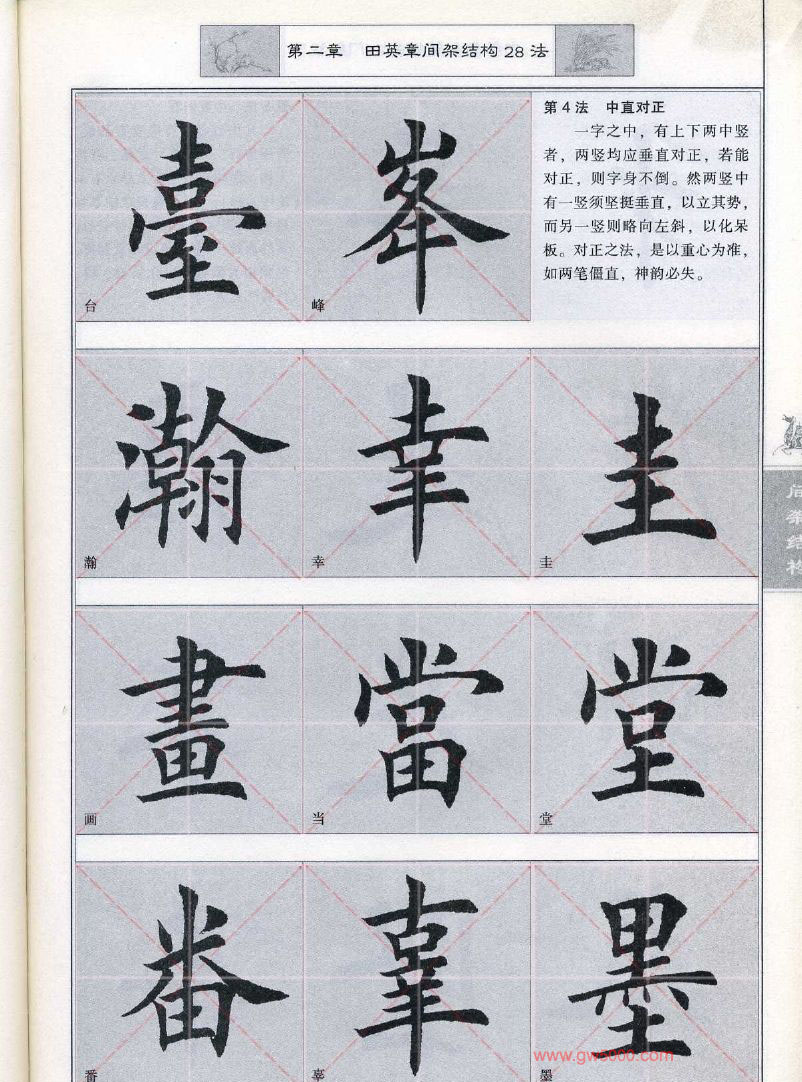 第二章 田英章间架结构28法
臺 峯
台 峰
第4法 中直对正
一字之中，有上下两中竖
者，两竖均应垂直对正，若能
对正，则字身不倒。然两竖中
有一竖须坚挺垂直，以立其势，
而另一竖则略向左斜，以化呆
板。对正之法，是以重心为准，
如两笔僵直，神韵必失。
瀚 幸 圭
瀚 幸 圭
畫 當 堂
画 当 堂
番 辜 墨
番 辜 墨
间架结构
www.gw5000.com